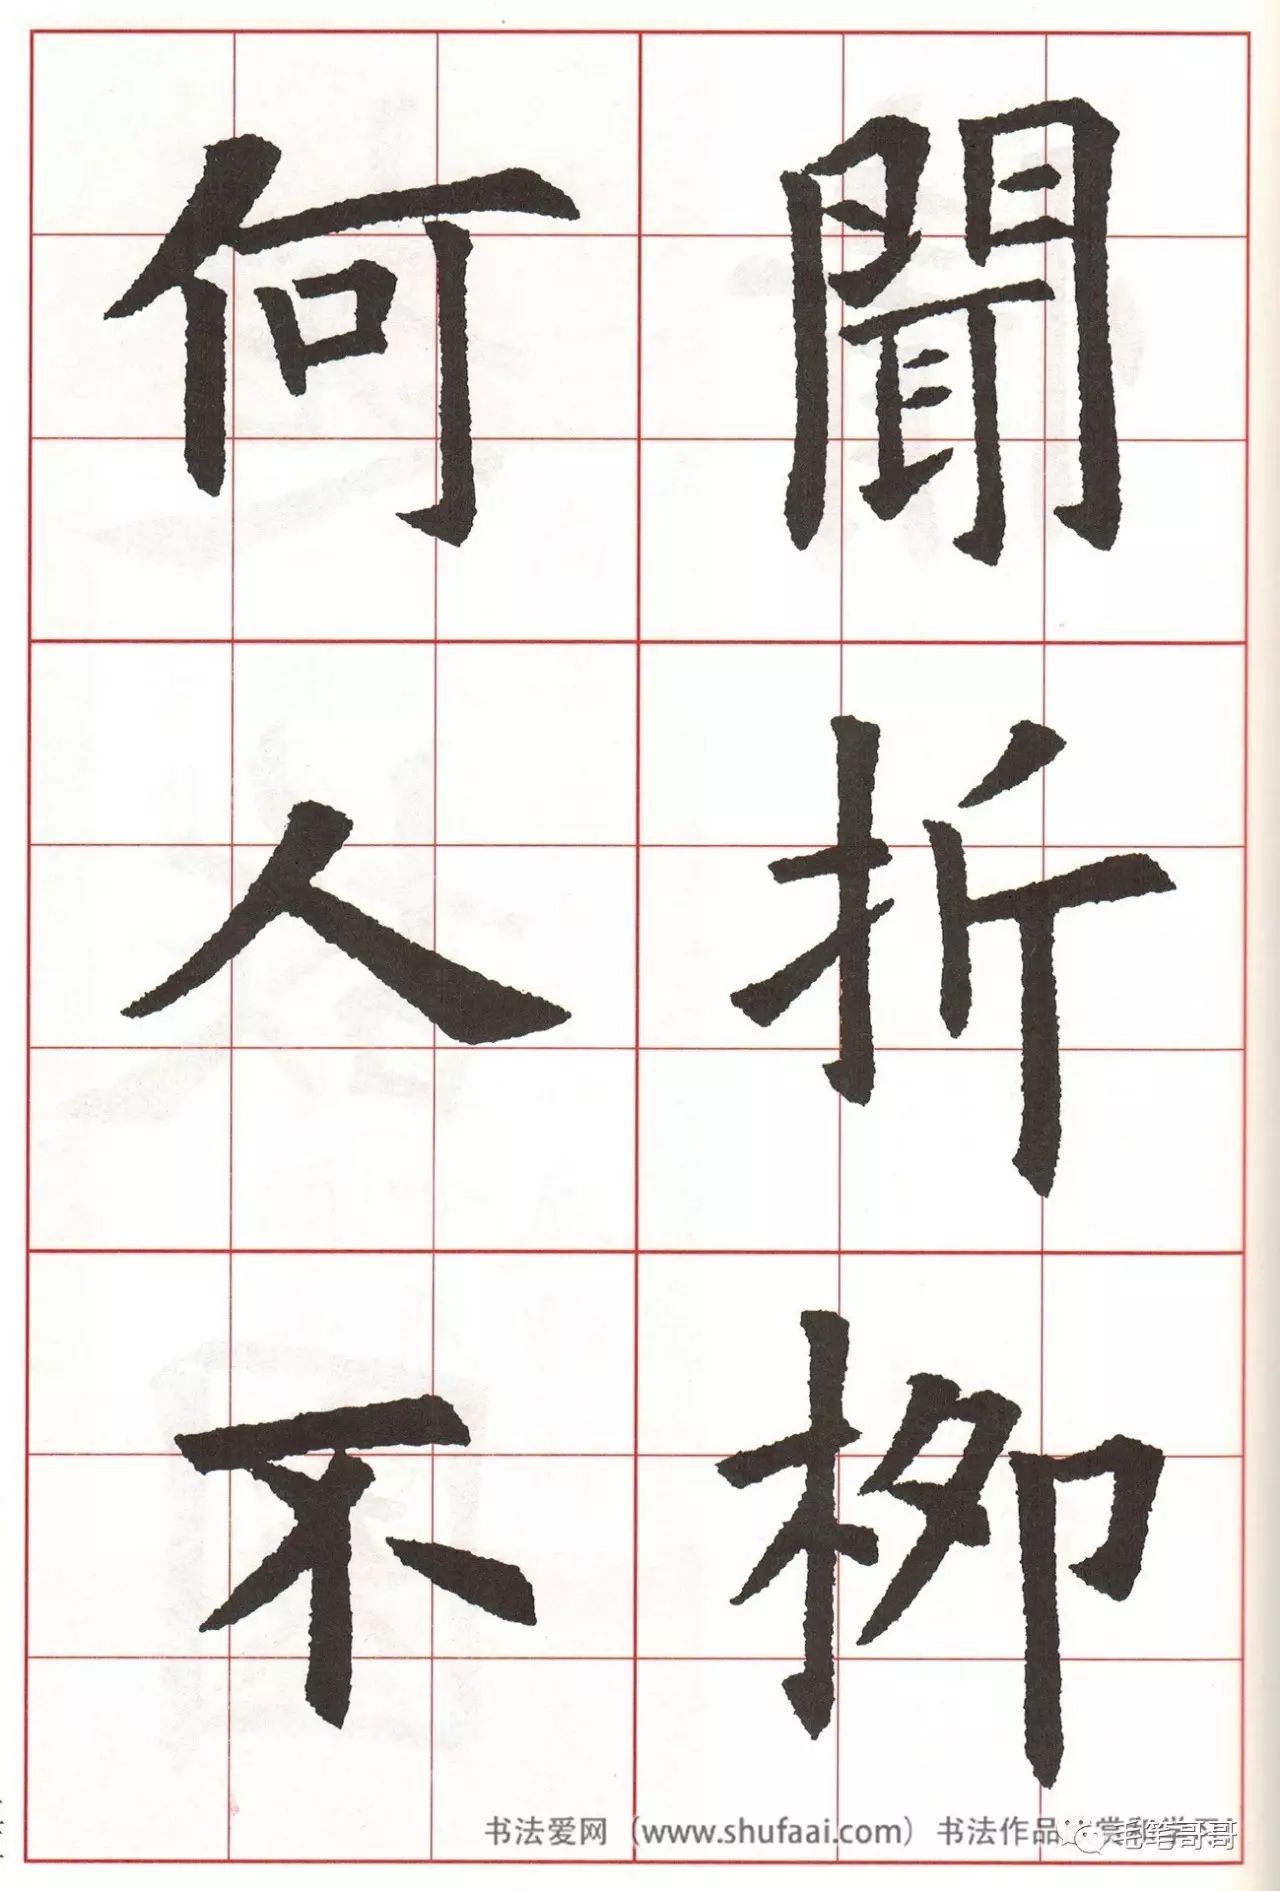 聞折柳
何人不
书法爱网（www.shufaai.com）书法作品
毛笔哥哥